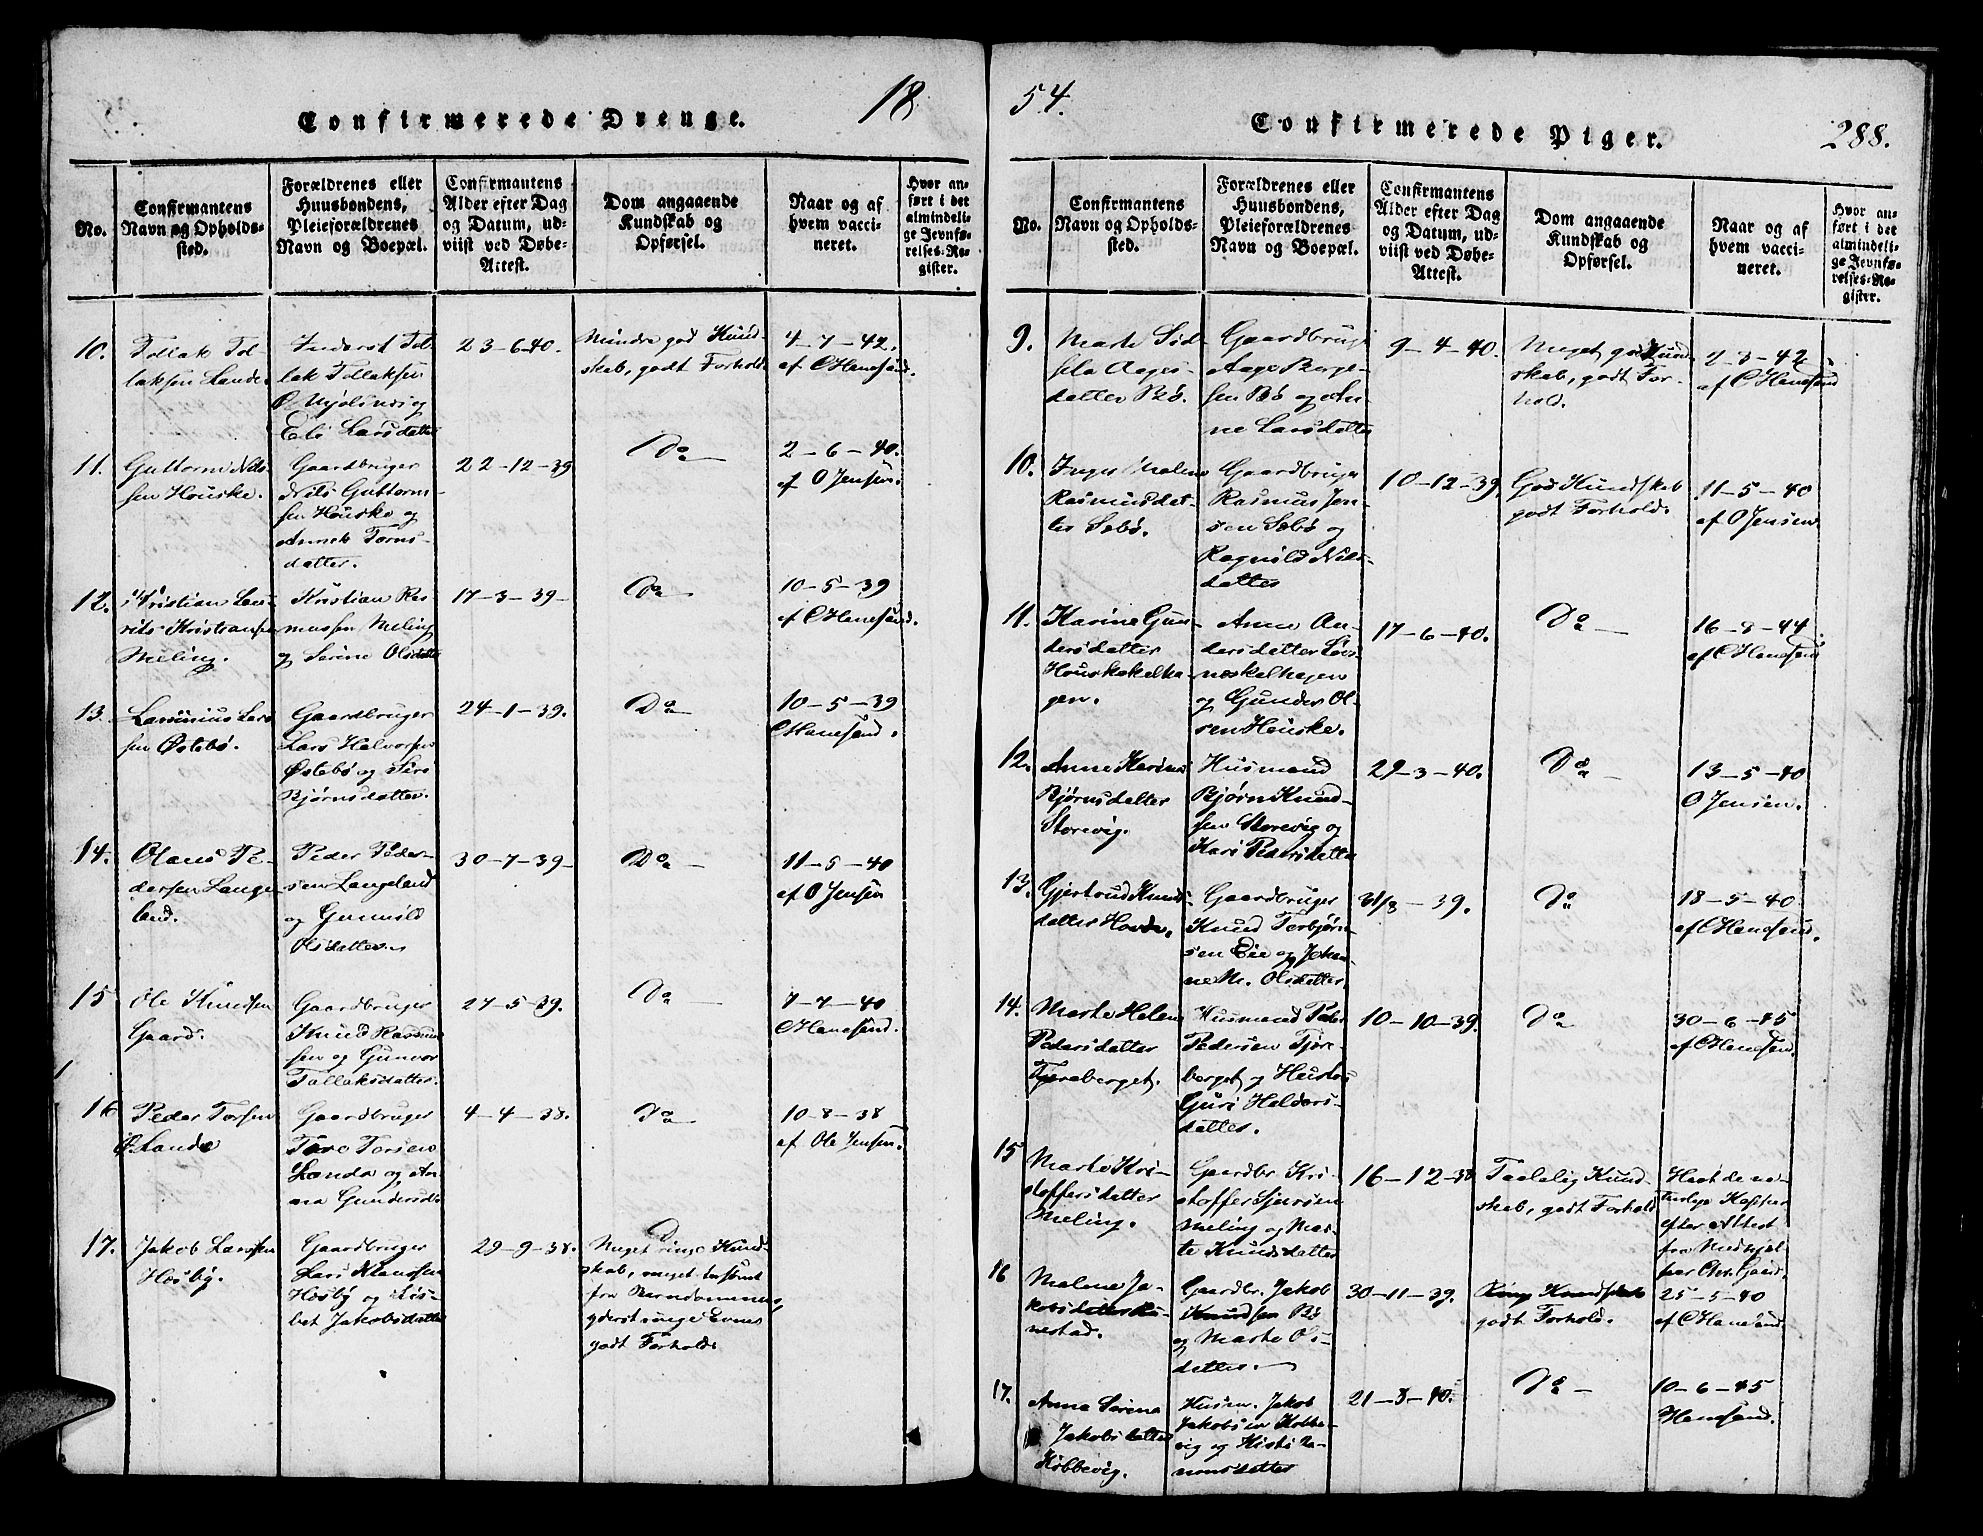 Confirmerede Drenge.
18
No.
Confirmantens
Navn og Opholds-
sted.
Forældrenes eller
Huusbondens,
Pleieforældrenes
Navn og Boepæl.
Confirmantens
Alder efter Dag
og Datum, ud-
viist ved Døbe-
Attest.
Dom angaaende
Kundskab og
Opførsel.
Naar og af
hvem vacci-
neret.
Hvor an-
ført i det
almindeli-
ge Jevnfø-
relses-Re-
gister.
10.
Tollak Tol-
laksen Lande
Inderst Tol-
lak Tollaksen
og
Eli Larsdatter
23-6-40.
Mindre god Kund-
skab, godt Forhold
4-7-42.
af C Hanesand.
11.
Guttorm Nils-
sen Houske.
Gaardbruger
Nils Guttorm-
sen Houske og
Torns-
datter.
22-12-39
Do
2-6-40.
af O Jensen.
12.
Kristian
Kristiansen
Meling.
Kristian Ras-
mussen Meling
og Serine Olsdatter
17-3-39-
Do
10-5-39
af C Hanesand.
13.
Lars-
sen Østebø.
Gaardbruger
Lars Halvorsen
Østebø og Siri
Bjørnsdatter.
24-1-39.
Do
10-5-39
C Hanesand.
14.
Olaus Pe-
dersen Lange-
land.
Peder Peder-
sen Langeland
og Gunnild
Olsdatter.
30-7-39-
Do
11-5-40
af O Jensen
15
Ole Knudsen
Gaard.
Gaardbruger
Knud Rasmus-
sen og Gunvor
Tollaksdatter.
27-5-39.
Do
7-7-40
C Hanesand.
16
Peder Torsen
Lande
Gaardbruger
Tore Torsen
Lande og An-
na Gundersdtr
4-4-38.
Do
10-8-38
af Ole Jensen.
17.
Jakob Larssen
Hosby.
Gaardbruger
Lars
Hosby og Lis-
bet Jakobsdatter
29-9-38.
Meget ringe Kund-
skab, meget forsømt
fra Barndommen,
yderst ringe Evner
godt Forhold
54.
Confirmerede Piger.
288.
No.
Confirmantens
Navn og Opholds-
sted.
Forældrenes eller
Huusbondens,
Pleieforældrenes
Navn og Boepæl.
Confirmantens
Alder efter Dag
og Datum, ud-
viist ved Døbe-
Attest.
Dom angaaende
Kundskab og
Opførsel.
Naar og af
hvem vacci-
neret.
Hvor an-
ført i det
almindeli-
ge Jevnfø-
relses-Re-
gister.
9.
Marte Sid-
sela Aages-
datter Bø.
Gaardbruger
Aage Børge-
sen Bø og An-
ne Larsdatter
9-4-40.
Meget god Kund-
skab, godt For-
hold.
2-8-42
af C Hanesand
10.
Inger Malene
Rasmusdat-
ter Sebø.
Gaardbruger
Rasmus Jen-
sen Sebø og
Ragnild Nils-
datter
10-12-39
God Kundskab
godt Forhold.
11-5-40
af O Jensen
11.
Karine Gun-
dersdatter
Houskekelha-
gen.
Anne An-
dersdatter
og Gunder Ol-
sen Houske.
17-6-40.
Do
16-8-44.
af C Hanesand
12.
Anne Karine
Bjørnsdatter
Storevig.
Husmand
Bjørn Knud-
sen Storevig og
Kari Pedersdatter
29-3-40.
Do
13-5-40
O Jensen.
13.
Gjertrud Knuds-
datter Hovda.
Gaardbruger
Knud Torbjørn-
sen Eie og Johan-
ne M. Olsdatter.
31/8-39.
Do
18-5-40
af C Hanesand.
14.
Marte Helene
Pedersdatter
Tjøreberget.
Husmand Peder
Pedersen Tjøre-
berget og Hustru
Guri Haldors-
datter.
10-10-39.
Do
30-6-45
af C Hanesand.
15
Marte Kri-
stoffersdatter
Meling.
Gaardbr. Kri-
stoffer Sjursen
Meling og Mar-
te Knudsdatter
16-12-38
Taalelig Kund-
skab, godt Forhold
Havt de na-
turlige Kopper
efter Attest
fra Medhjæl-
per Chr. Gaard.
16
Malene Ja-
kobsdatter
Gaardbr. Jakob
Knudsen Bø
og Marte Ols-
datter.
30-11-39.
Ring Kundskab
godt Forhold.
25-5-40
af C Hanesand.
17.
Anna Serena
Jakobsdatter
Kobbevig.
Husm. Jakob
Jakobsen Kobbe-
vig og
21-3-40.
Do
10-6-45
Hanesand.